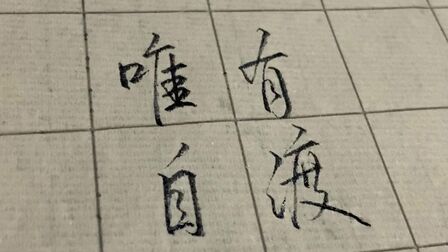 唯有
自渡